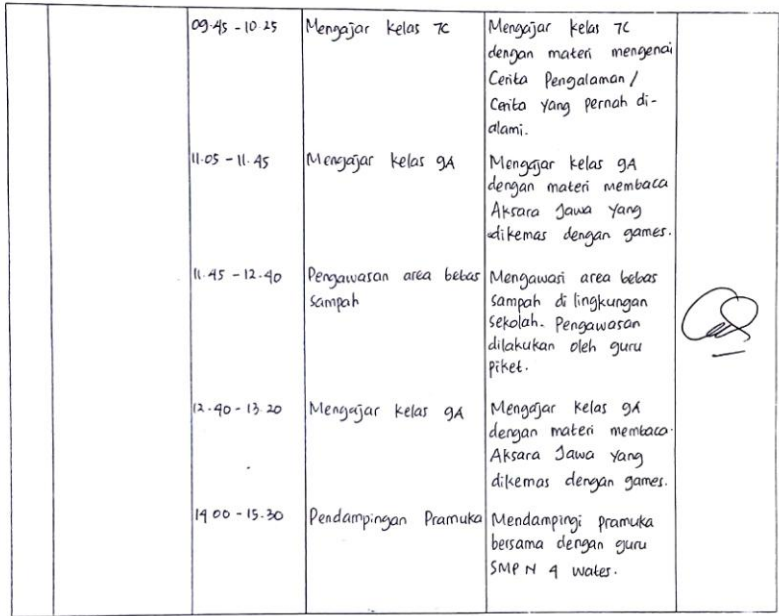 09.45 - 10.25
Mengajar kelas 7C
Mengajar kelas 7C
dengan materi mengenai
Cerita Pengalaman /
Cerita yang pernah di-
alami.
11.05 - 11.45
Mengajar kelas 9A
Mengajar kelas 9A
dengan materi membaca
Aksara Jawa yang
dikemas dengan games.
11.45 - 12.40
Pengawasan area bebas
sampah
Mengawasi area bebas
sampah di lingkungan
sekolah. Pengawasan
dilakukan oleh guru
piket.
12.40 - 13.20
Mengajar kelas 9A
Mengajar kelas 9A
dengan materi membaca
Aksara Jawa yang
dikemas dengan games.
14 00 - 15.30
Pendampingan Pramuka
Mendampingi pramuka
bersama dengan guru
SMP N 4 Wates.